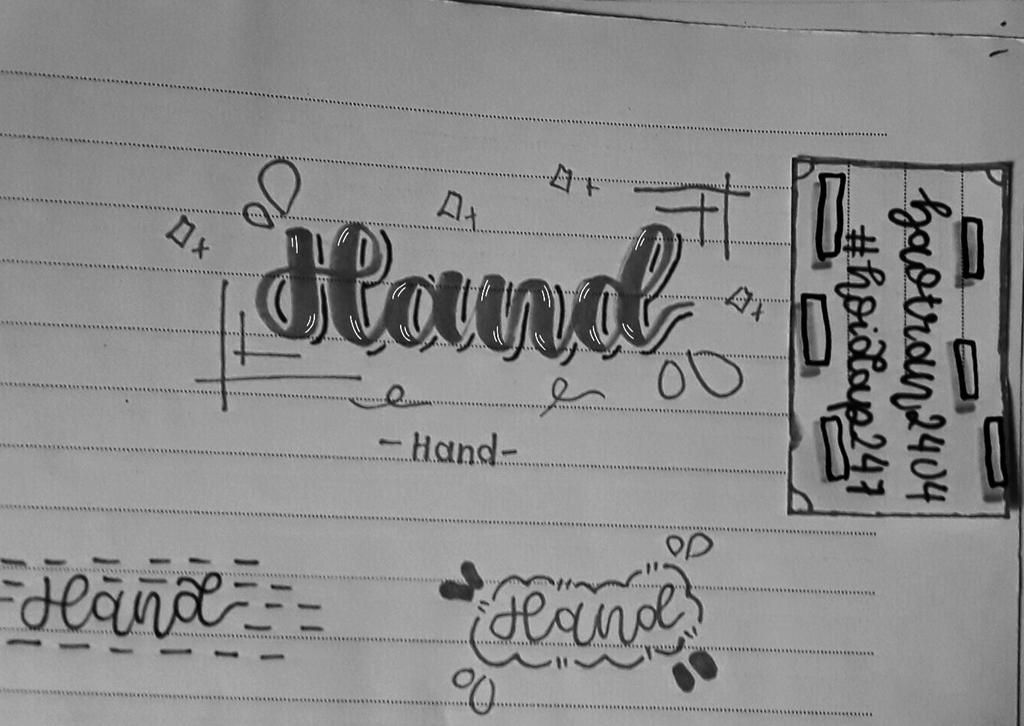 Hand
-Hand-
Hand
Hand
baotran2404
#hoidap247